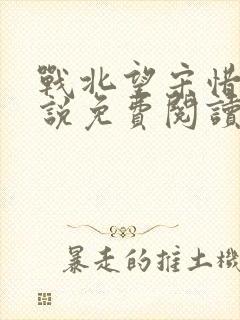 戰北望宋惜
說免費閱讀
暴走的推土機